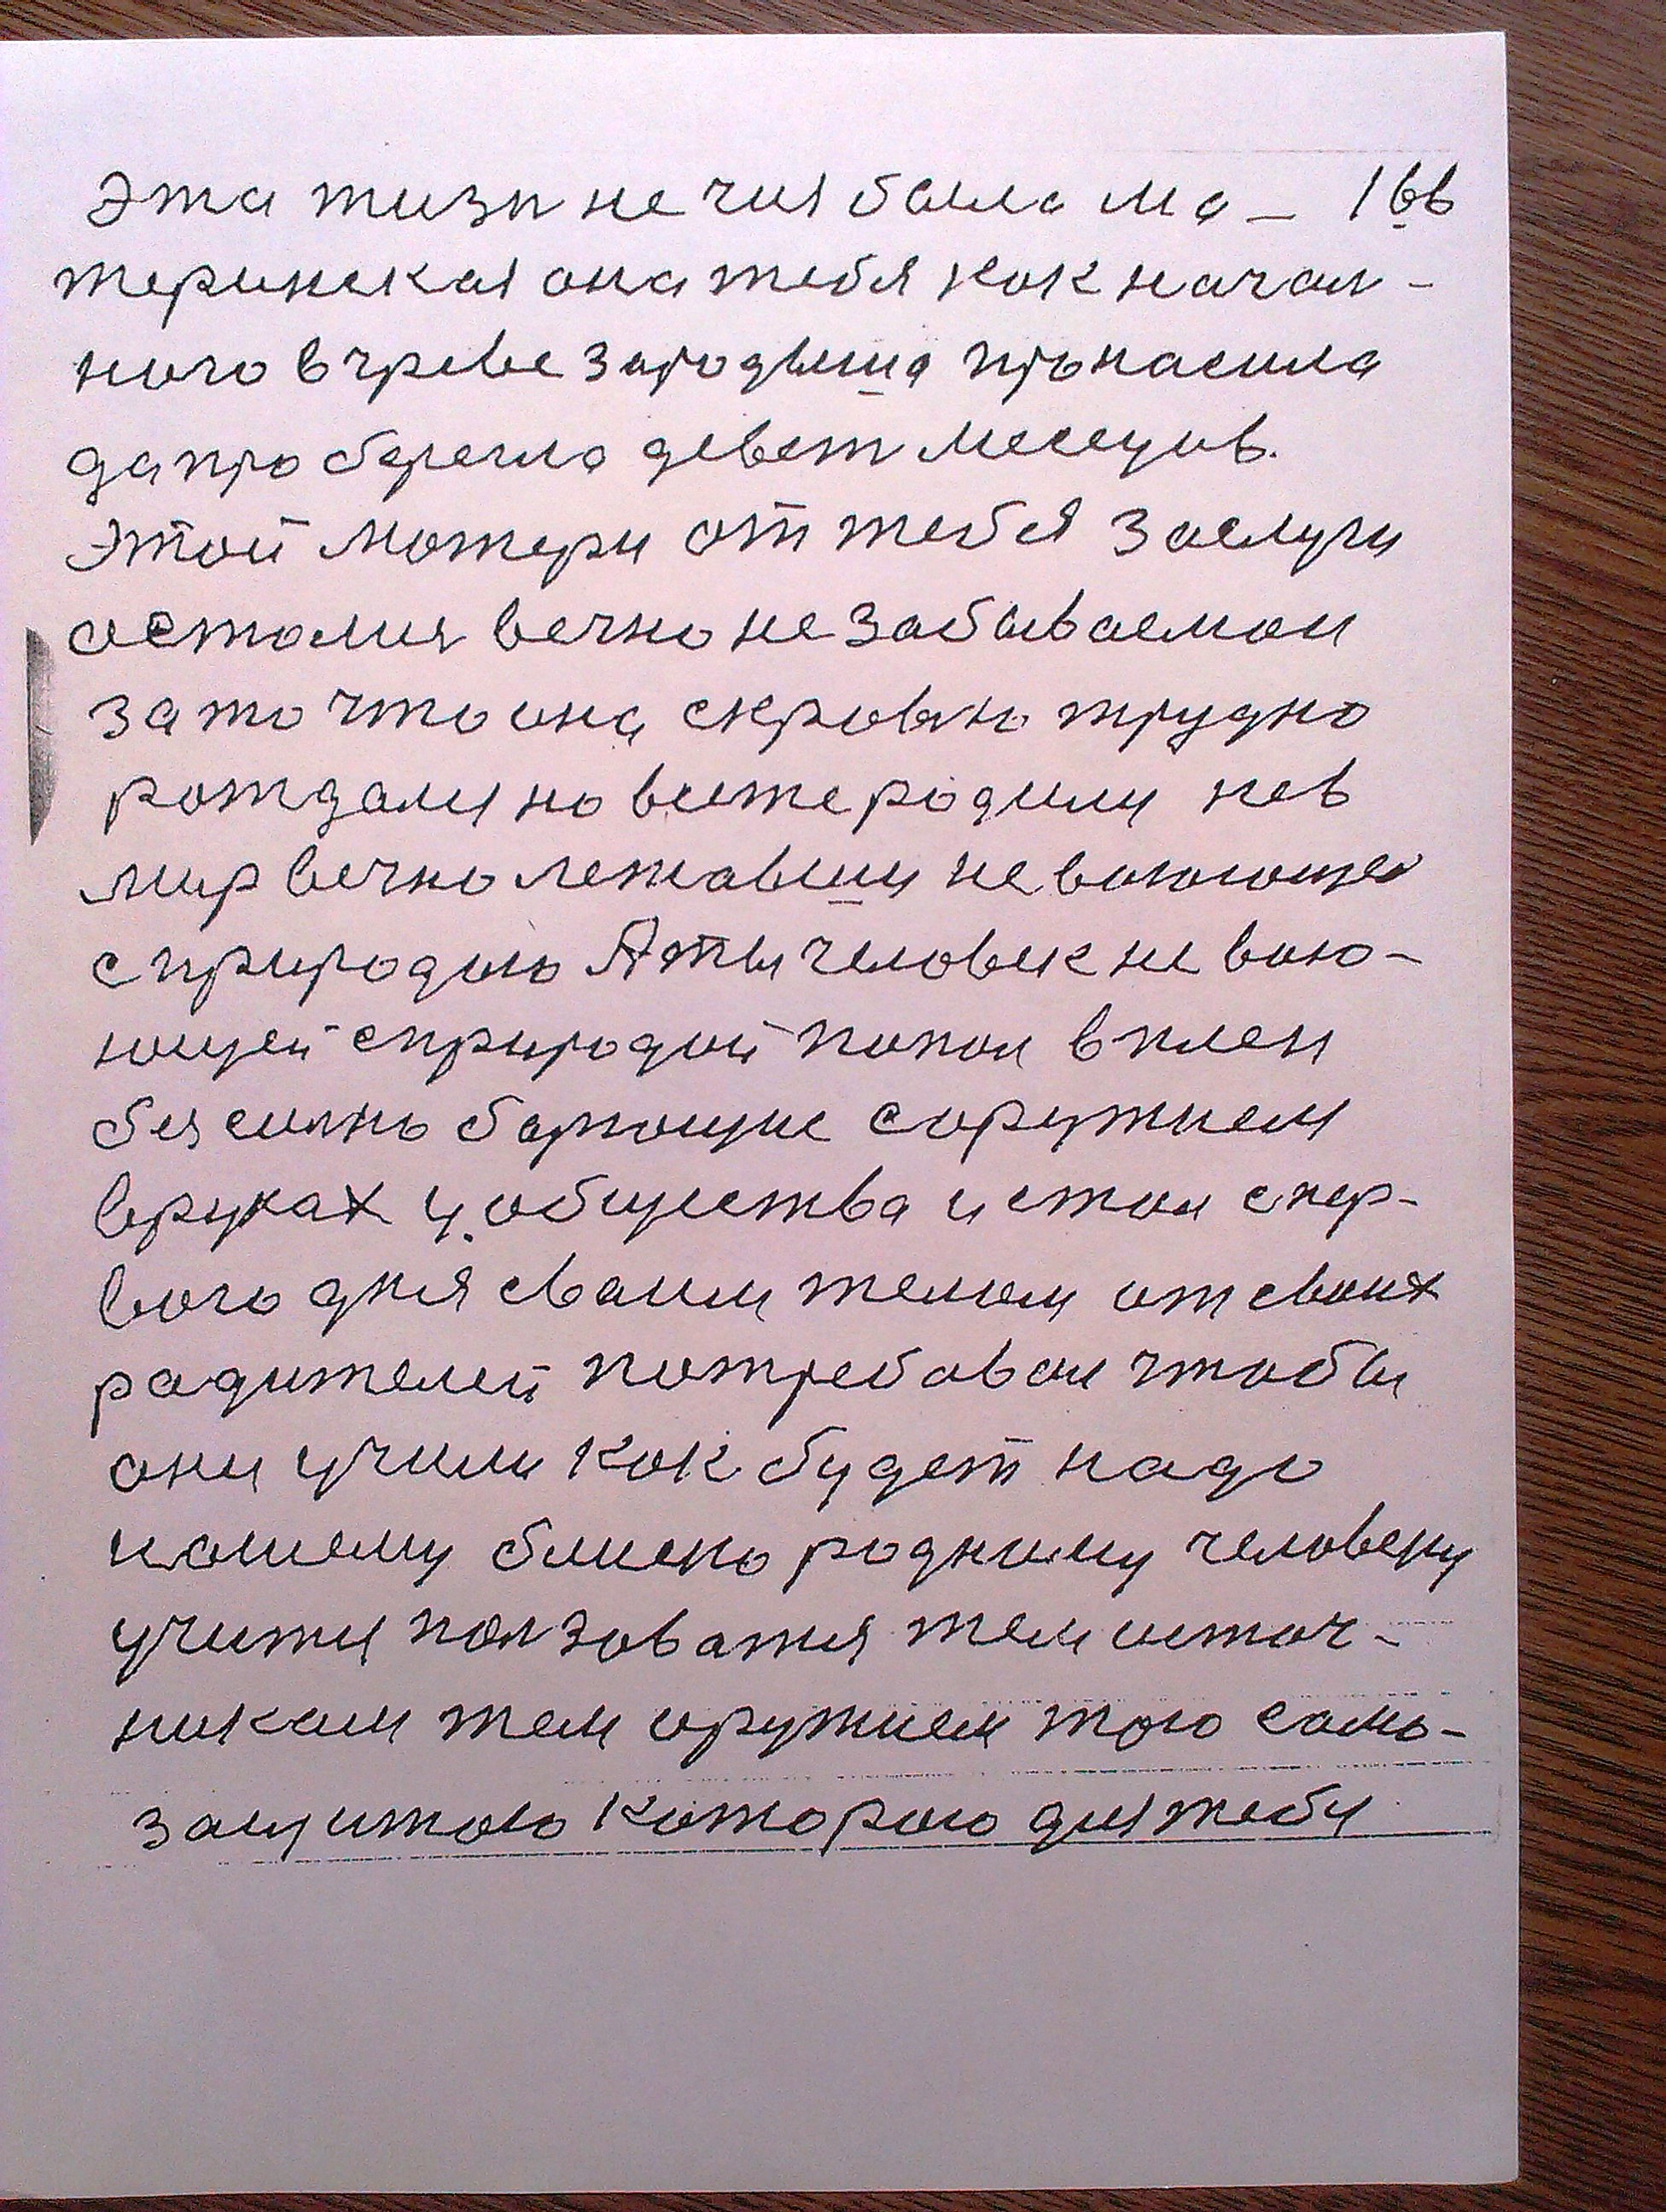 Эта жизн не чия была ма- 166
теринская она тебя как начал-
ного в чреве зародыша пронасила
да про берегла девет месецов.
Этой матери от тебя заслуги
осталися вечно не забываемои
за то что она скровью трудно
рождали но выже родили нев
мир вечно лежавши не воюющео
с природою А ты человек не вою-
ющей сприродой попал в плен
бея силнь бающие соружием
вруках у общества и стал спер-
вого дня сваим телом от своих
радителей потребовал чтобы
они учили как будет надо
нашему блиско родному человеку
учится ползоватия тем источ-
никам тем оружием тою само-
защитою которою для тебя